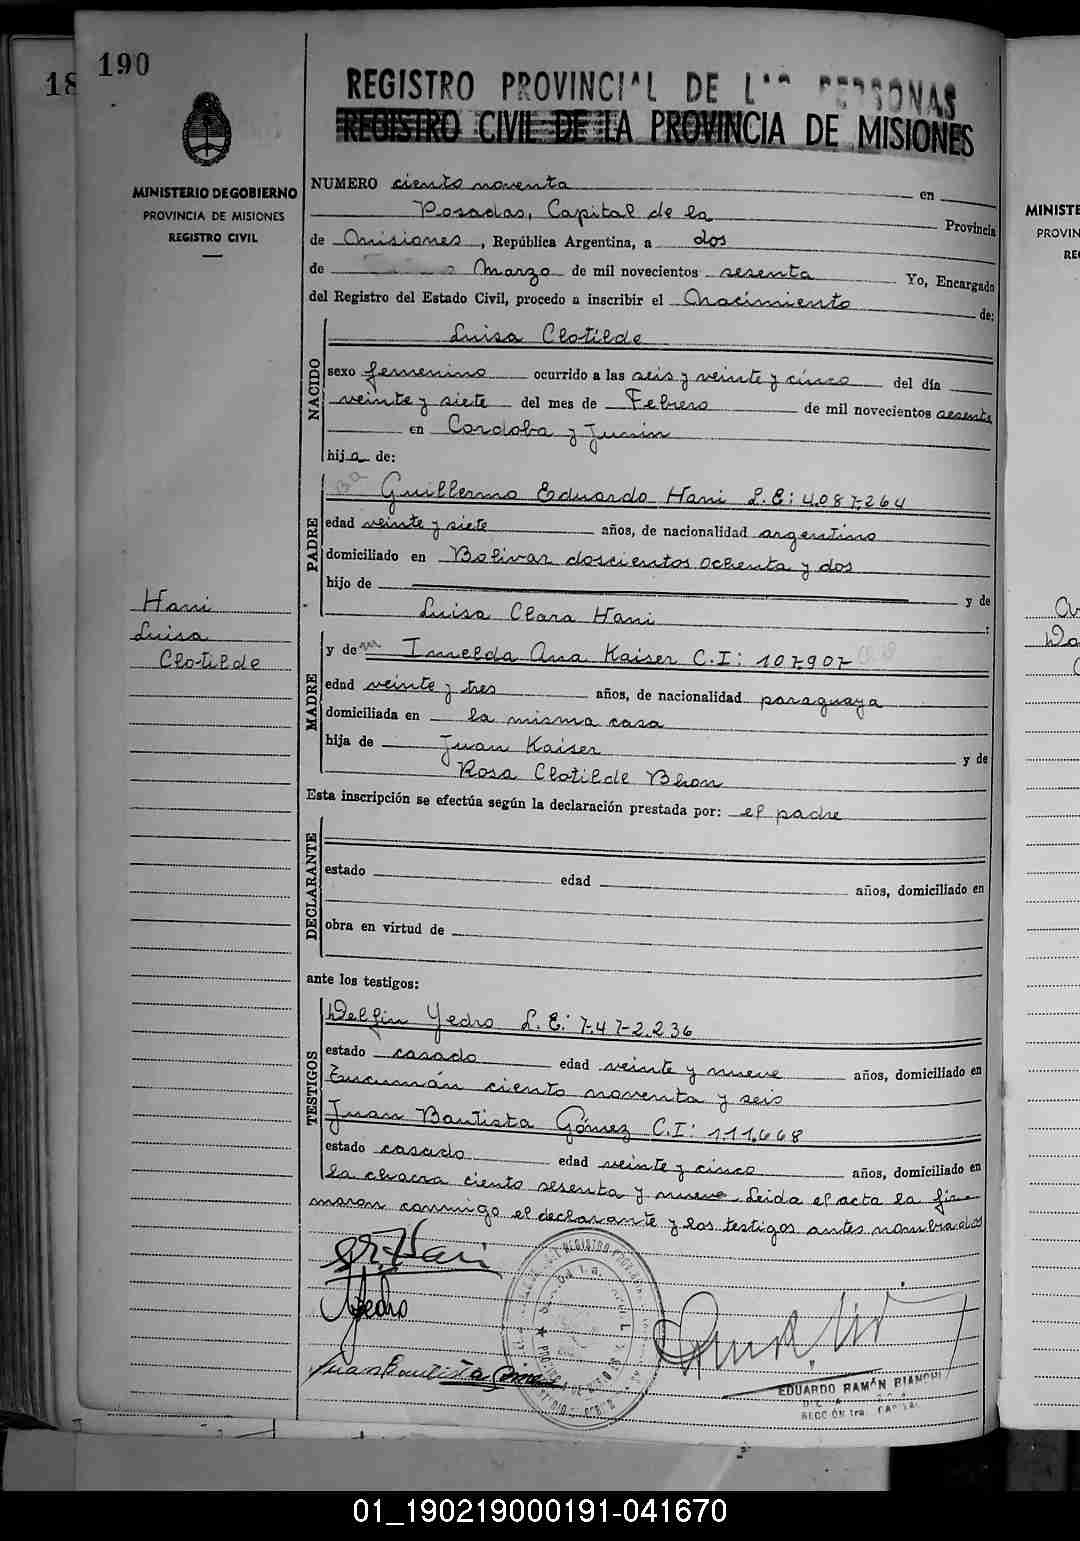 190
18
REGISTRO PROVINCIAL DE LAS PERSONAS
REGISTRO CIVIL DE LA PROVINCIA DE MISIONES
MINISTERIO DE GOBIERNO
PROVINCIA DE MISIONES
REGISTRO CIVIL
NUMERO ciento noventa en
Posadas, Capital de la Provincia
de Misiones, República Argentina, a dos
de Marzo de mil novecientos sesenta Yo, Encargado
del Registro del Estado Civil, procedo a inscribir el Nacimiento de:
NACIDO
Luisa Clotilde
sexo femenino ocurrido a las seis y veinte y cinco del día
veinte y siete del mes de Febrero de mil novecientos sesenta
en Cordoba y Junin
hija de:
PADRE
Guillermo Eduardo Hani L.E: 4.087.264
edad veinte y siete años, de nacionalidad argentino
domiciliado en Bolivar doscientos ochenta y dos
hijo de y de
Luisa Clara Hani :
Hani
Luisa
Clotilde
MADRE
y de Imelda Ana Kaiser C.I: 107.907
edad veinte y tres años, de nacionalidad paraguaya
domiciliada en la misma casa
hija de Juan Kaiser y de
Rosa Clotilde Bhon
Esta inscripción se efectúa según la declaración prestada por: el padre
DECLARANTE
estado edad años, domiciliado en
obra en virtud de
ante los testigos:
TESTIGOS
Delfin Yedro L.E: 7.472.236
estado casado edad veinte y nueve años, domiciliado en
Tucumán ciento noventa y seis
Juan Bautista Gómez C.I: 111.668
estado casado edad veinte y cinco años, domiciliado en
la chacra ciento sesenta y nueve. Leida el acta la fir-
maron conmigo el declarante y los testigos antes nombrados
Hani
Yedro
Juan Bautista Gómez
EDUARDO RAMÓN BIANCHI
SECCIÓN 1ra. CAPITAL
MINISTE
PROVIN
RE
01_190219000191-041670